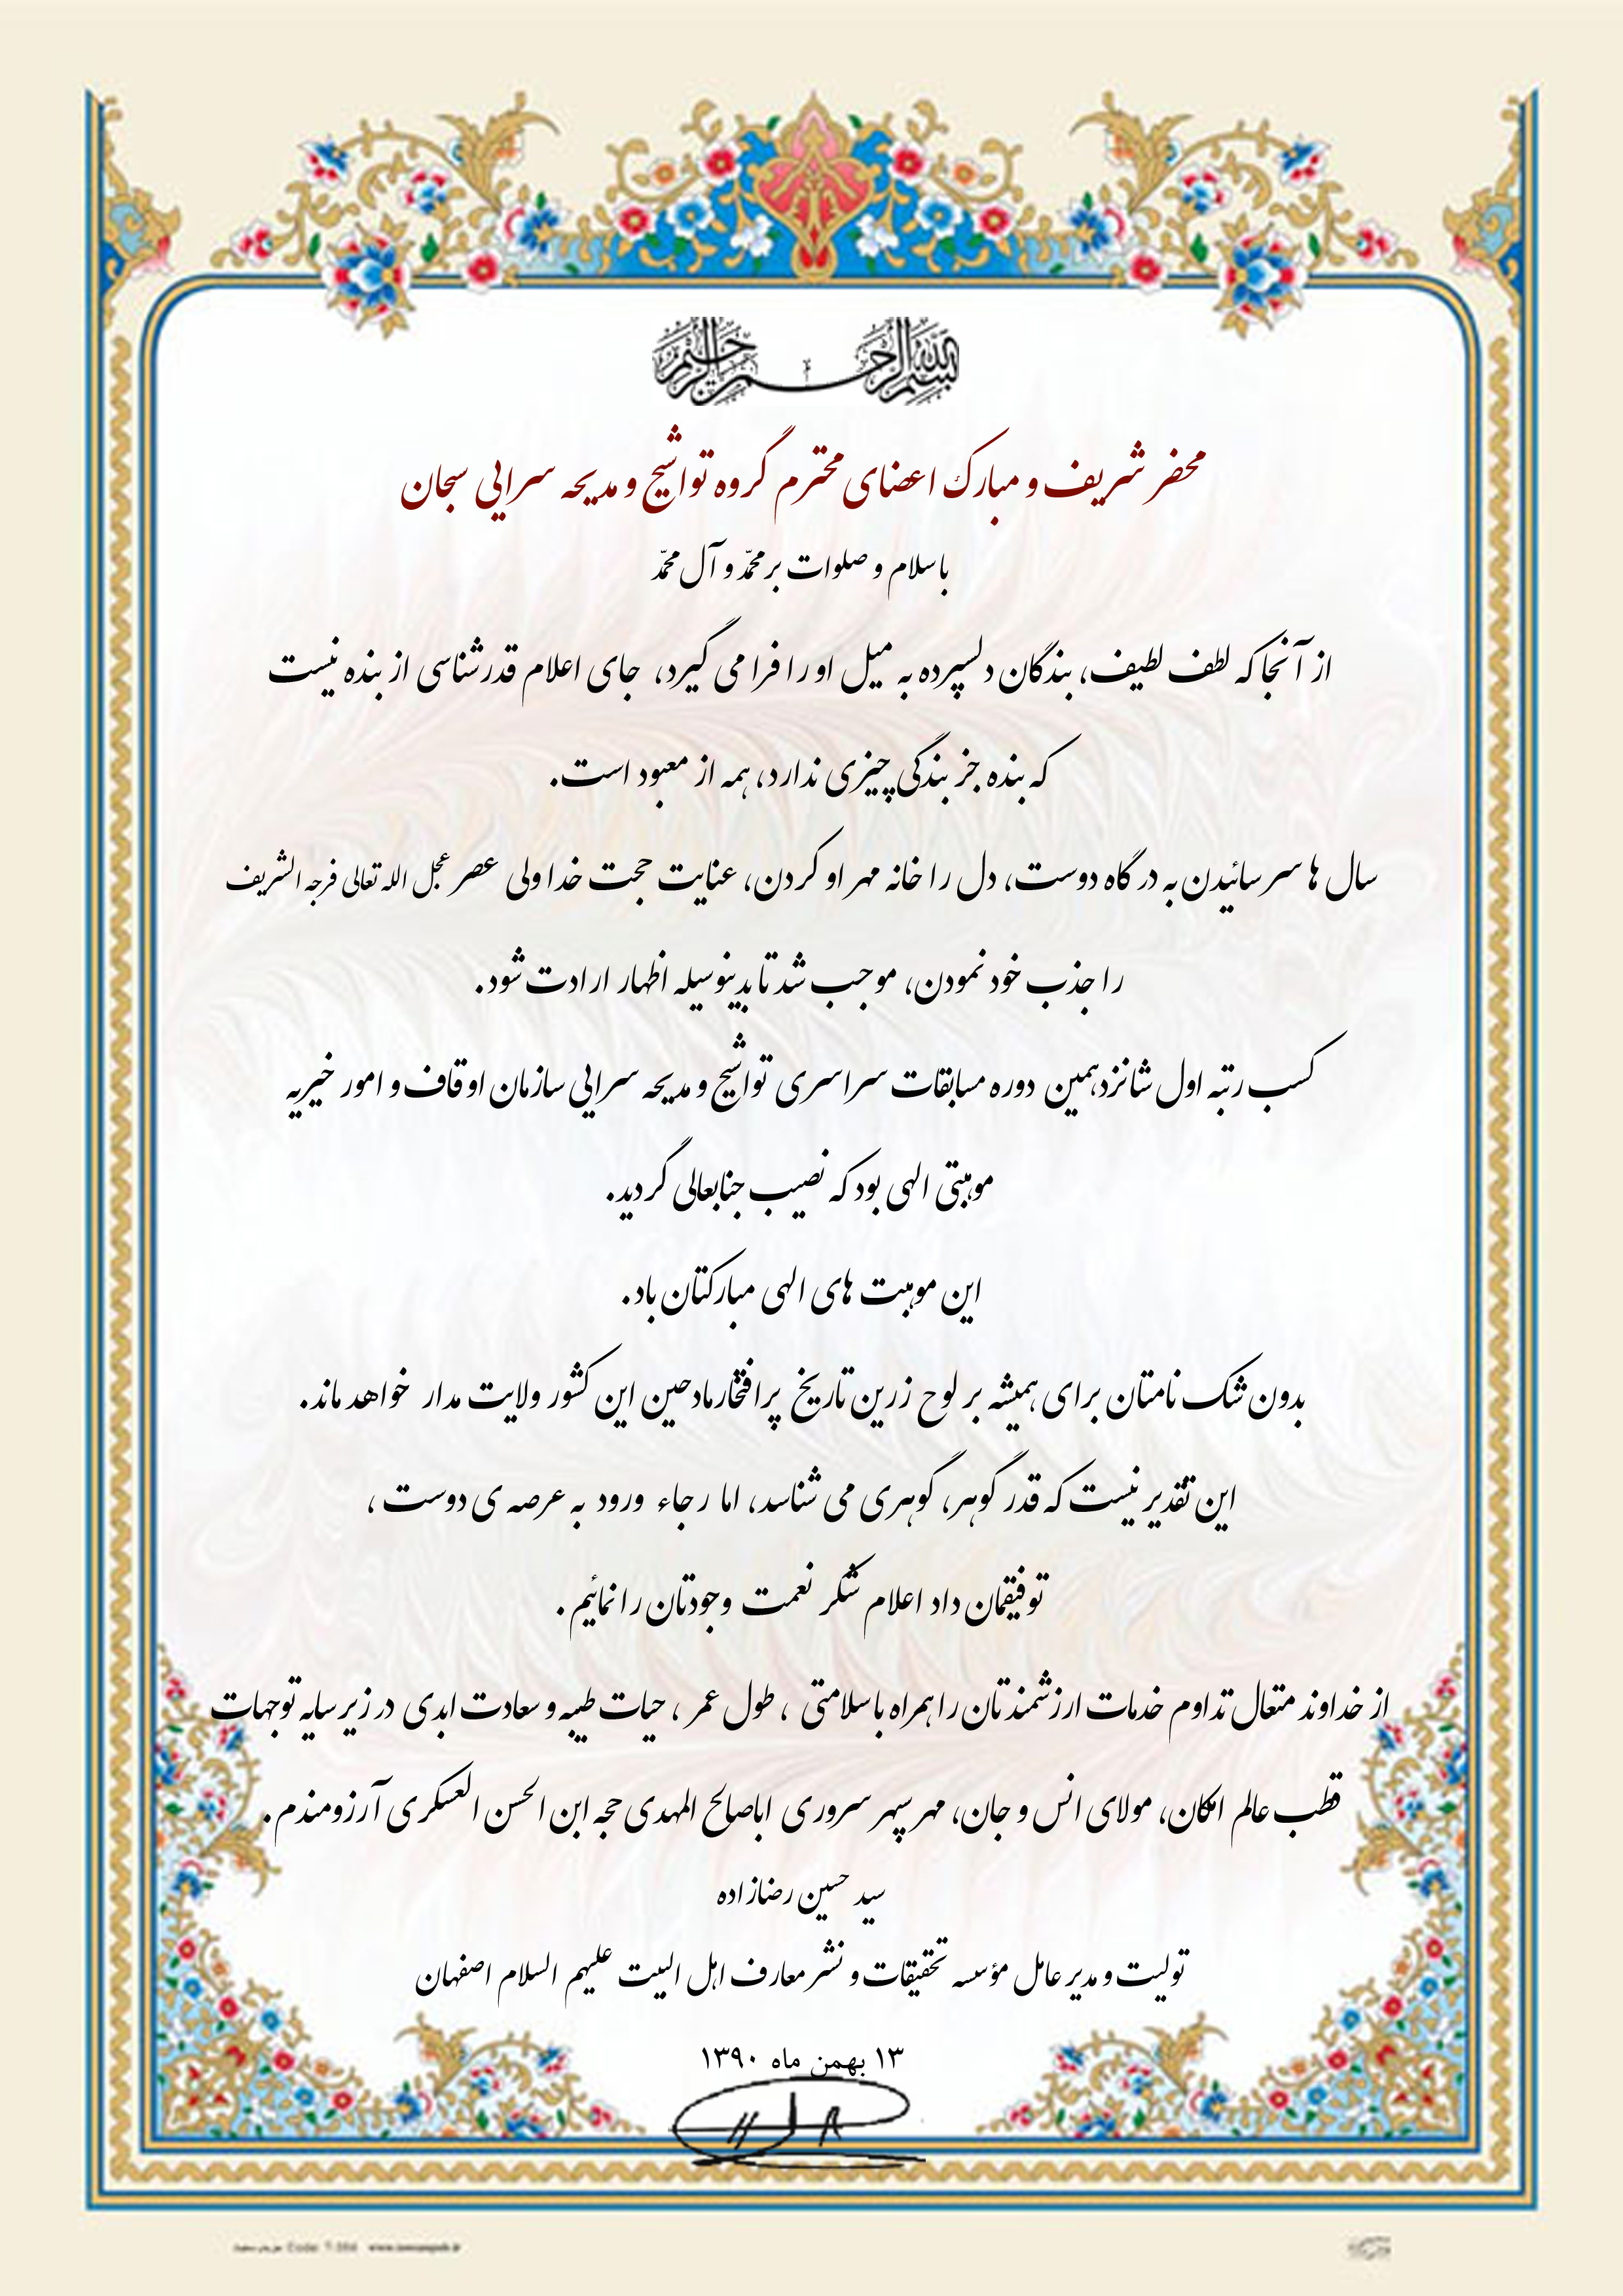 بسم الله الرحمن الرحیم
محفر شریف و مبارک اعضای محترم گروه تواشیح و مدیحه سرایی سبحان
باسلام و صلوات بر محمّد و آل محمّد
از آنجا که لطف لطیف، بندگان دلسپرده به میل او را فرا می گیرد، جای اعلام قدرشناسی از بنده نیست
که بنده جز بندگی چیزی ندارد، همه از معبود است.
سال ها سر سائیدن به درگاه دوست، دل را خانه مهر او کردن، عنایت حجت خدا ولی عصر عجل الله تعالی فرجه الشریف
را جذب خود نمودن، موجب شد تا بدینوسیله اظهار ارادت شود.
کسب رتبه اول شانزدهمین دوره مسابقات سراسری تواشیح و مدیحه سرایی سازمان اوقاف و امور خیریه
موهبتی الهی بود که نصیب جنابعالی گردید.
این موهبت های الهی مبارکتان باد.
بدون شک نامتان برای همیشه بر لوح زرین تاریخ پرافتخار مادحین این کشور ولایت مدار خواهد ماند.
این تقدیر نیست که قدر گوهر، گوهری می شناسد، اما رجاء ورود به عرصه ی دوست،
توفیقمان داد اعلام شکر نعمت وجودتان را نمائیم.
از خداوند متعال تداوم خدمات ارزشمندتان را همراه با سلامتی ، طول عمر ، حیات طیبه و سعادت ابدی در زیر سایه توجهات
قطب عالم امکان، مولای انس و جان، مهر سپهر سروری اباصالح المهدی حجه ابن الحسن العسکری آرزومندم.
سید حسین رضازاده
تولیت و مدیر عامل مؤسسه تحقیقات و نشر معارف اهل البیت علیهم السلام اصفهان
۱۳ بهمن ماه ۱۳۹۰